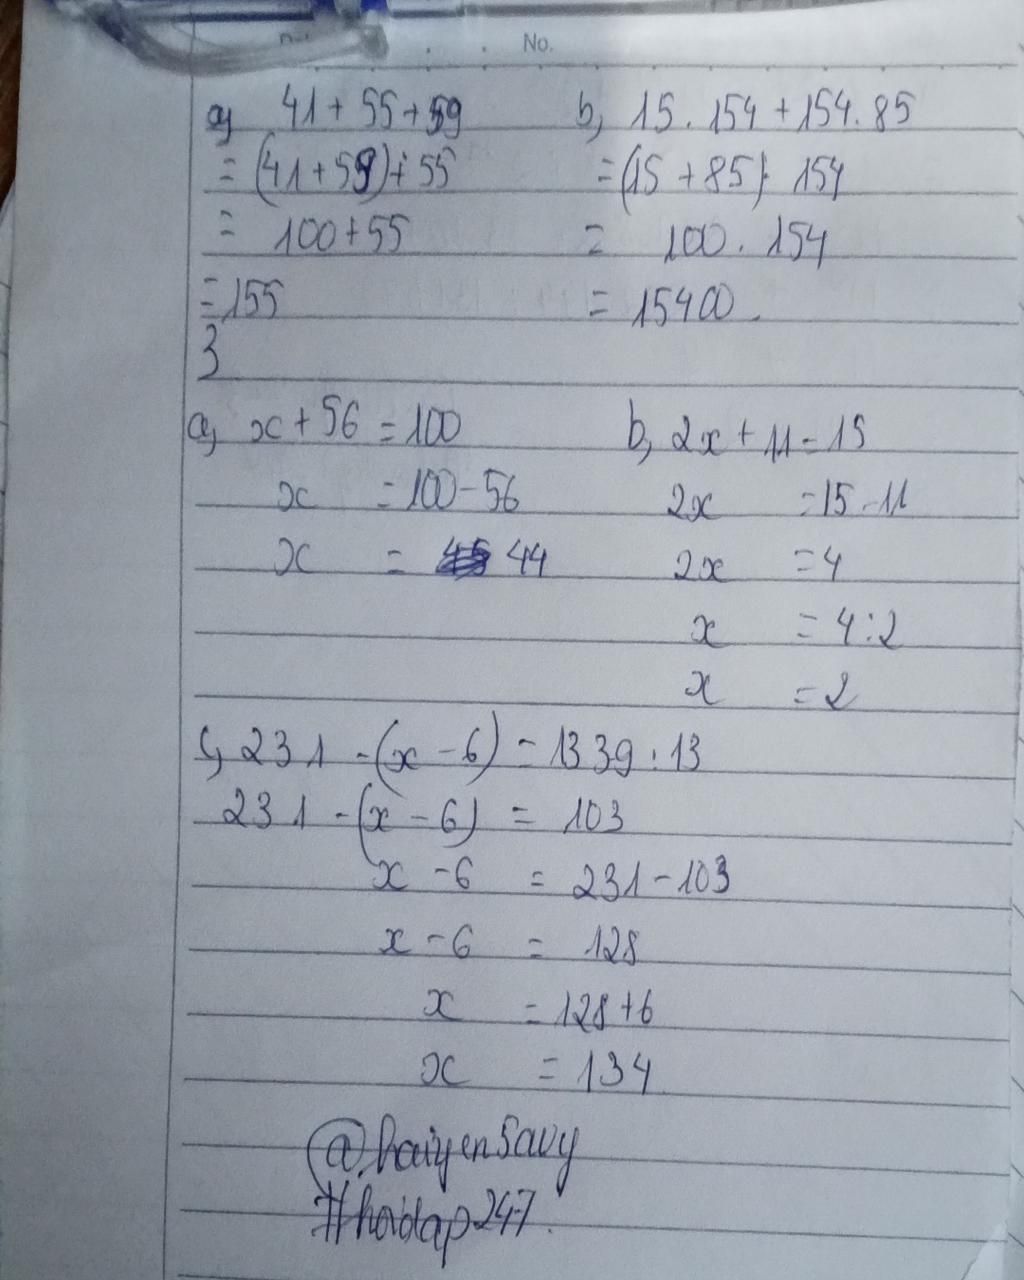 No.
a, 41 + 55 + 59
= (41 + 59) + 55
= 100 + 55
= 155
b, 15 . 154 + 154 . 85
= (15 + 85) . 154
= 100 . 154
= 15400.
3
a, x + 56 = 100
x = 100 - 56
x = 44
b, 2x + 11 = 15
2x = 15 - 11
2x = 4
x = 4 : 2
x = 2
c, 231 - (x - 6) = 1339 : 13
231 - (x - 6) = 103
x - 6 = 231 - 103
x - 6 = 128
x = 128 + 6
x = 134
@haiyen5avy
#hoidap247.